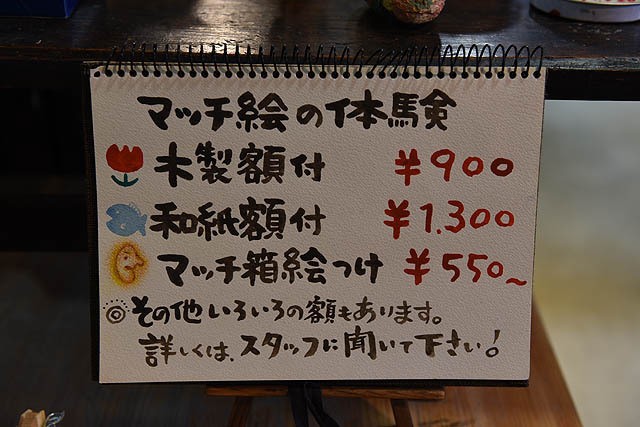 マッチ絵の体馬険
木製額付 ¥900
和紙額付 ¥1.300
マッチ箱絵つけ ¥550~
◎その他いろいろの額もあります。
詳しくは、スタッフに聞いて下さい!